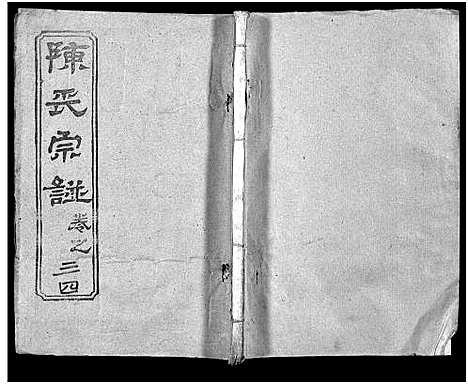 陳氏宗譜卷之三四